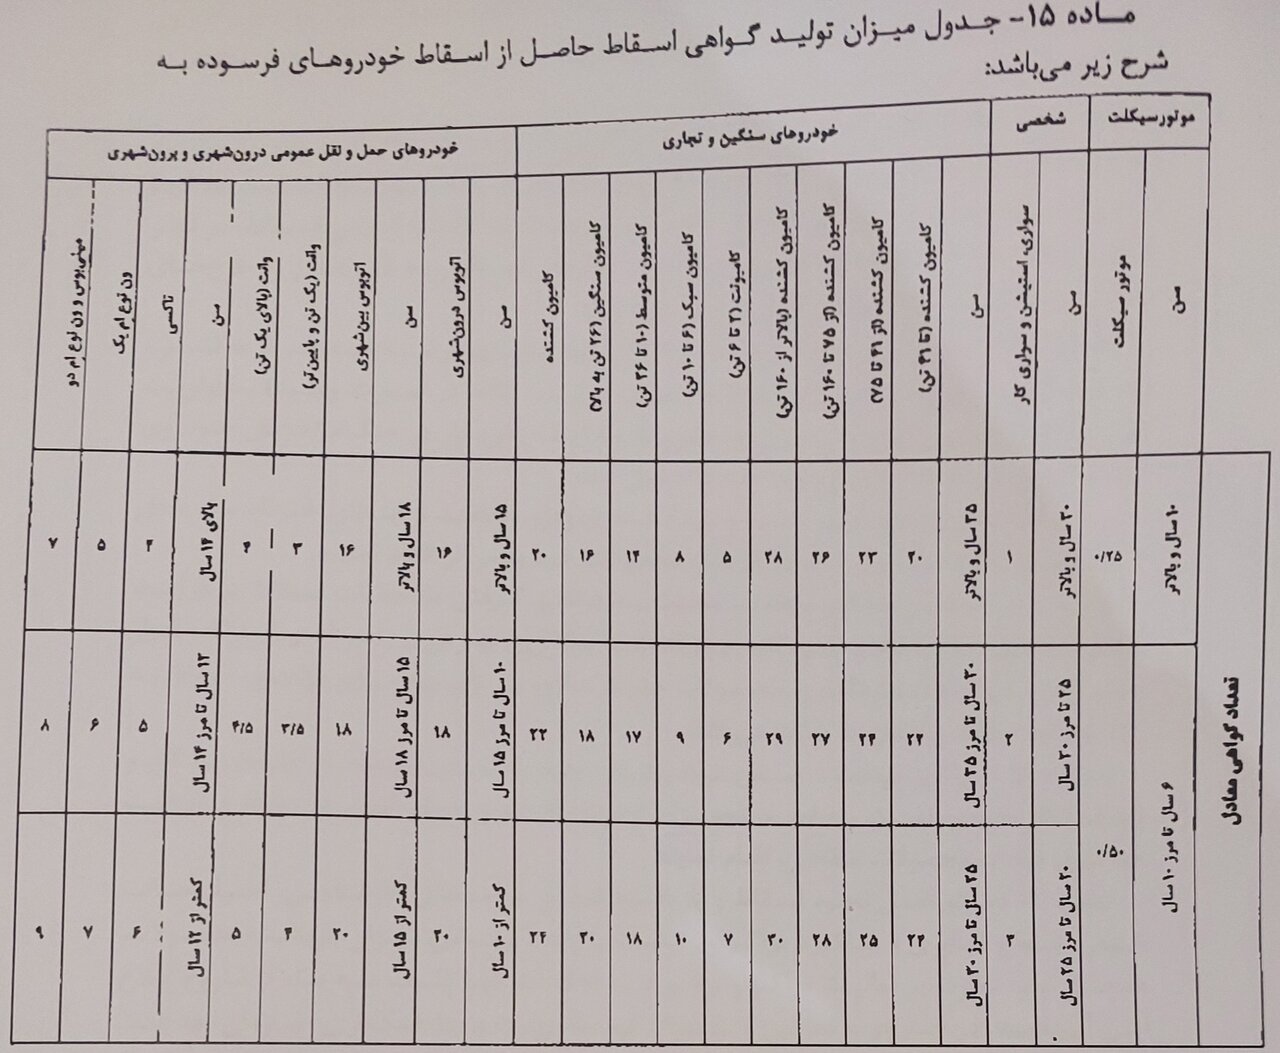 ماده ۱۵- جدول میزان تولید گواهی اسقاط حاصل از اسقاط خودروهای فرسوده به
شرح زیر می‌باشد:
موتورسیکلت
شخصی
خودروهای سنگین و تجاری
خودروهای حمل و نقل عمومی درون‌شهری و برون‌شهری
سن
موتور سیکلت
سن
سواری، استیشن و سواری کار
سن
کامیون کشنده (تا ۴۱ تن)
کامیون کشنده (از ۴۱ تا ۷۵)
کامیون کشنده (از ۷۵ تا ۱۶۰ تن)
کامیون کشنده (بالاتر از ۱۶۰ تن)
کامیونت (۲ تا ۶ تن)
کامیون سبک (۶ تا ۱۰ تن)
کامیون متوسط (۱۰ تا ۲۶ تن)
کامیون سنگین (۲۶ تن به بالا)
کامیون کشنده
سن
اتوبوس درون‌شهری
سن
اتوبوس بین‌شهری
وانت (یک تن و پایین‌تر)
وانت (بالای یک تن)
سن
تاکسی
ون نوع ام یک
مینی‌بوس و ون نوع ام دو
تعداد گواهی معادل
۱۰ سال و بالاتر
۰/۲۵
۳۰ سال و بالاتر
۱
۳۵ سال و بالاتر
۲۰
۲۳
۲۶
۲۸
۵
۸
۱۴
۱۶
۲۰
۱۵ سال و بالاتر
۱۶
۱۸ سال و بالاتر
۱۶
۳
۴
بالای ۱۴ سال
۴
۵
۷
۶ سال تا مرز ۱۰ سال
۰/۵۰
۲۵ تا مرز ۳۰ سال
۲
۳۰ سال تا مرز ۳۵ سال
۲۲
۲۴
۲۷
۲۹
۶
۹
۱۷
۱۸
۲۲
۱۰ سال تا مرز ۱۵ سال
۱۸
۱۵ سال تا مرز ۱۸ سال
۱۸
۳/۵
۴/۵
۱۲ سال تا مرز ۱۴ سال
۵
۶
۸
۲۰ سال تا مرز ۲۵ سال
۳
۲۵ سال تا مرز ۳۰ سال
۲۴
۲۵
۲۸
۳۰
۷
۱۰
۱۸
۲۰
۲۴
کمتر از ۱۰ سال
۲۰
کمتر از ۱۵ سال
۲۰
۴
۵
کمتر از ۱۲ سال
۶
۷
۹